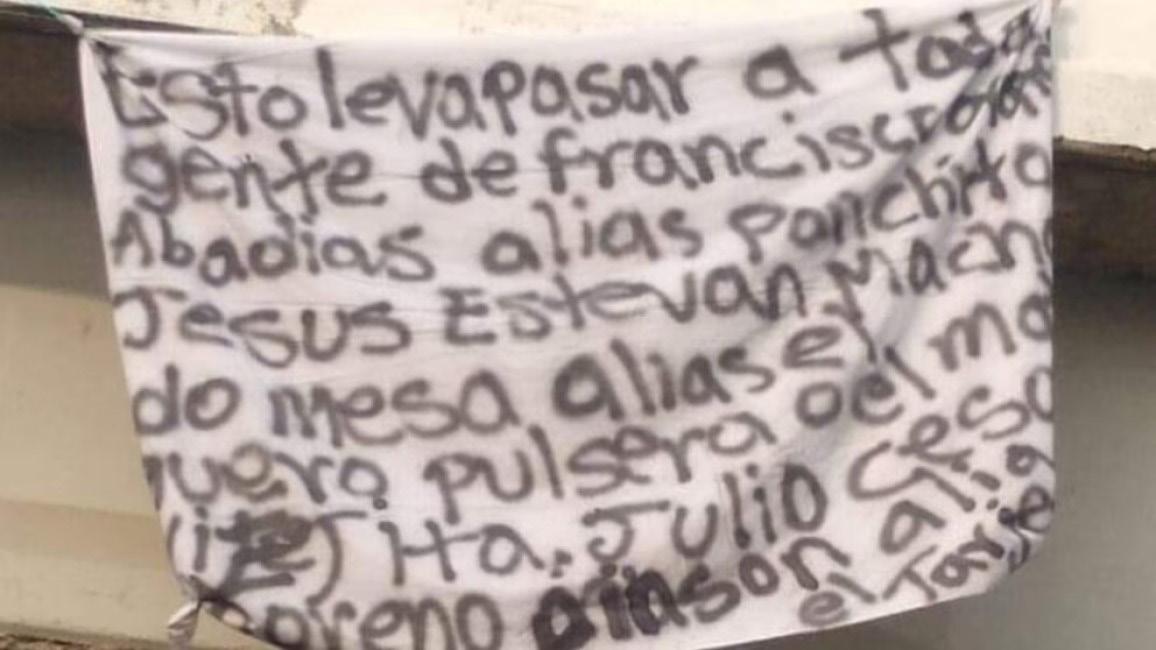 Esto levapasar a toda
gente de francisco
Abadias alias panchito
Jesus Estevan Macha
do mesa alias el
guero pulsera o el ma
Jita. Julio Cesa
pinson alia
el Tarje